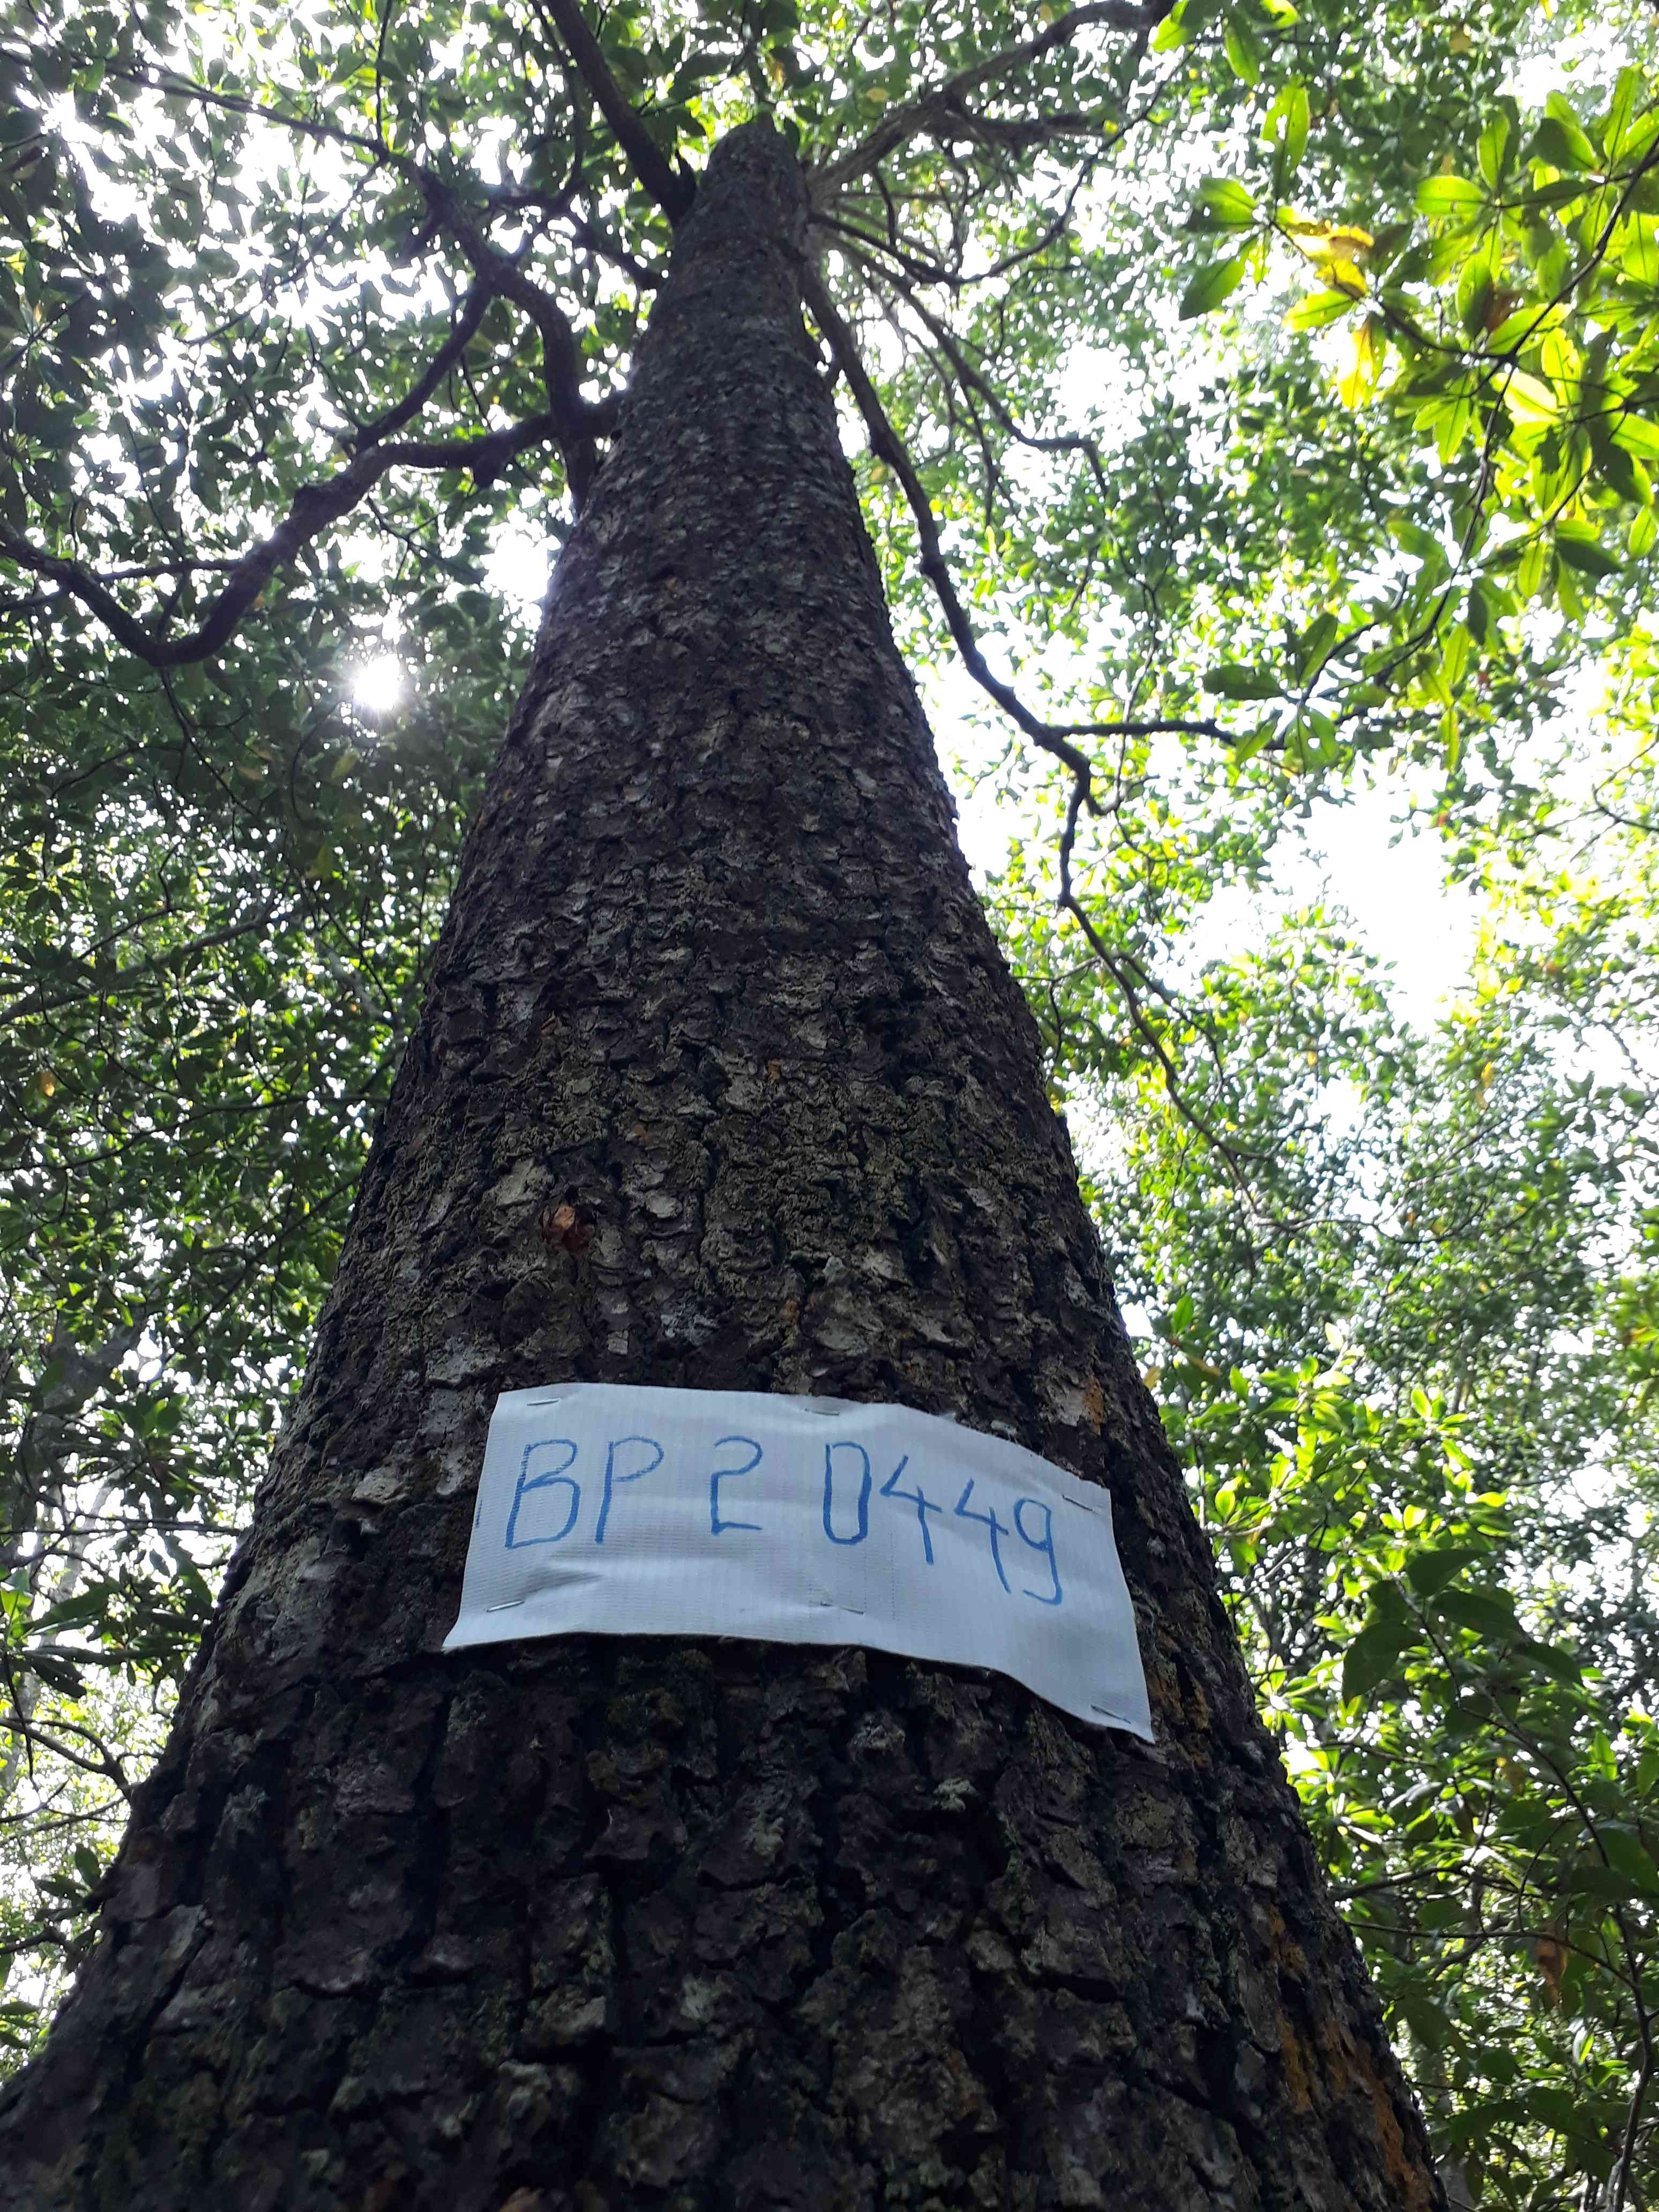 BP 2 0449